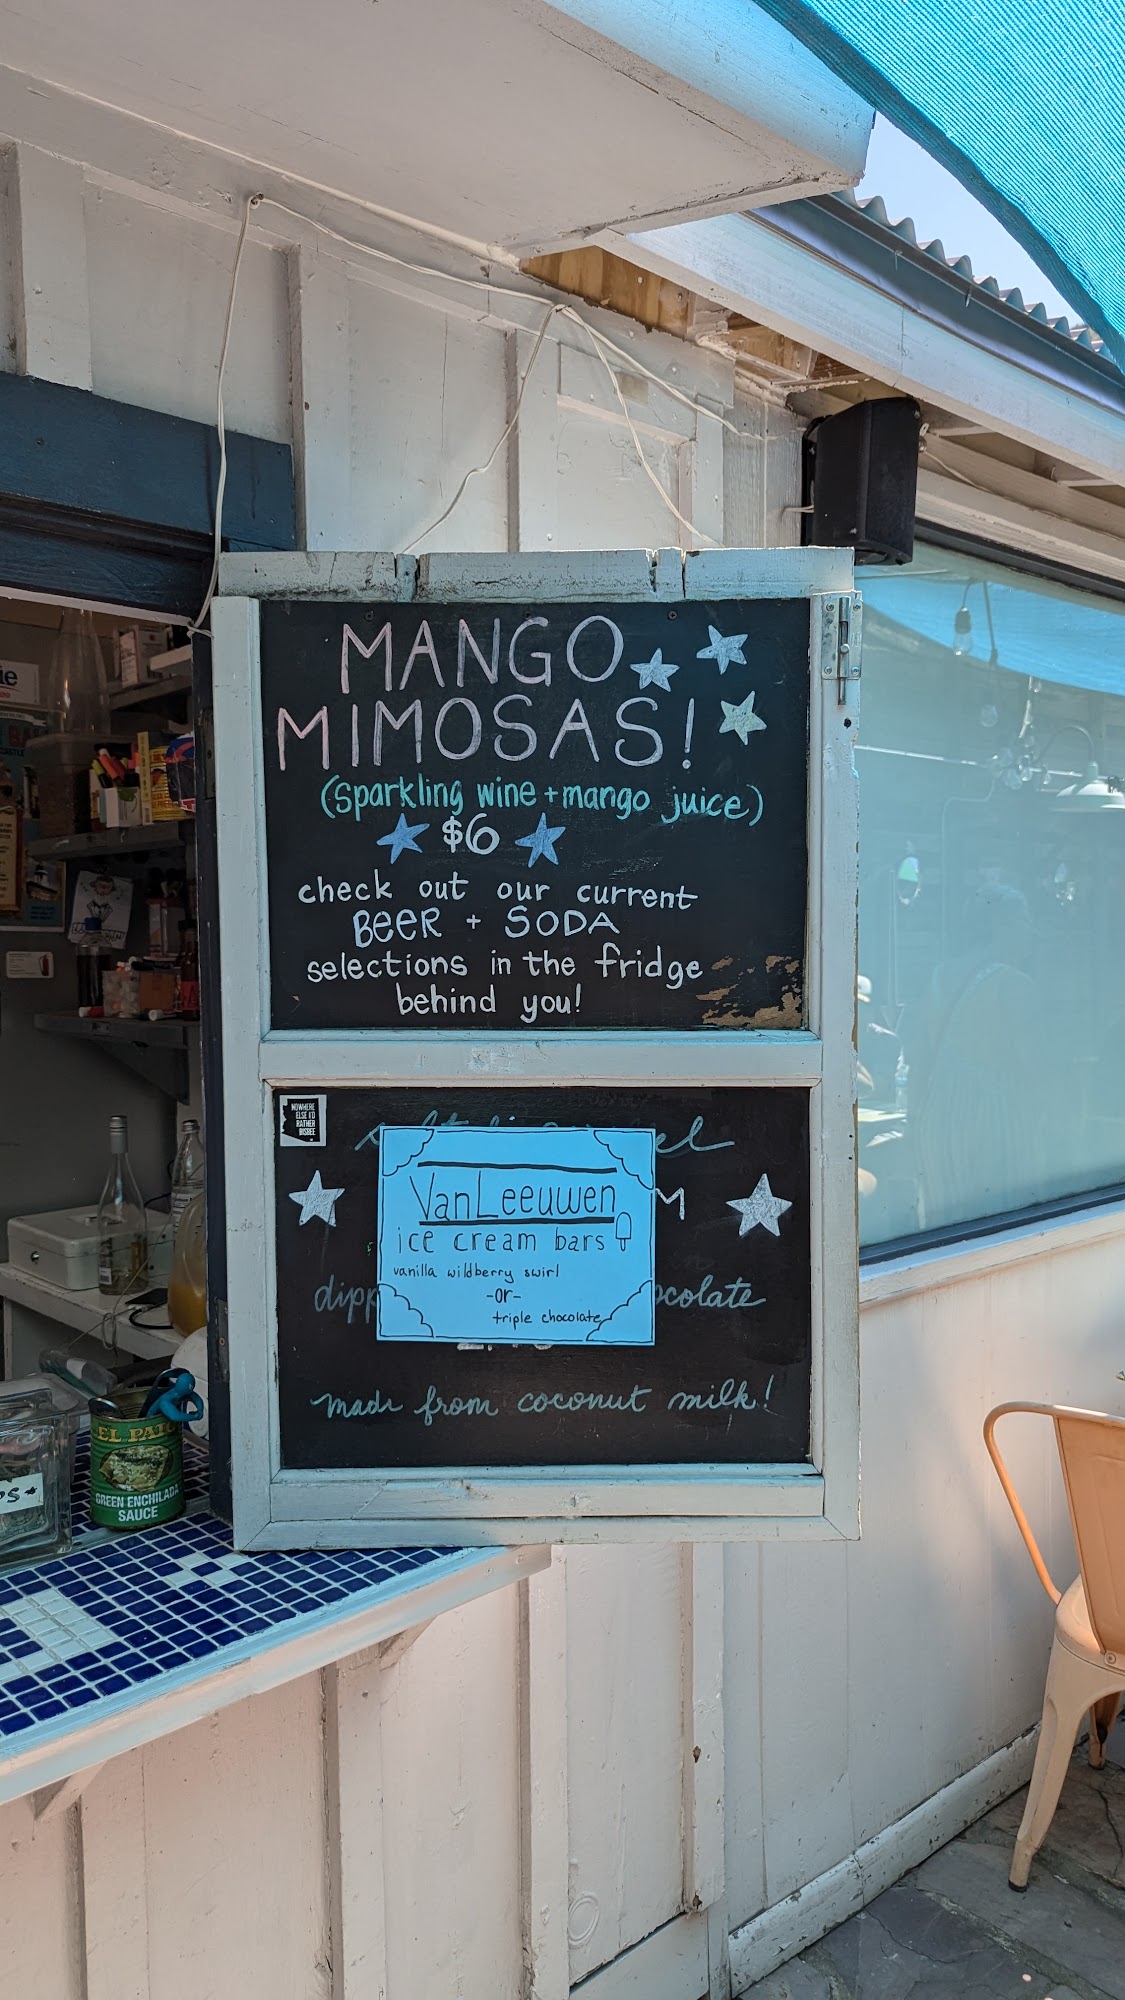 MANGO
MIMOSAS!
(sparkling wine + mango juice)
$6
check out our current
BEER + SODA
selections in the fridge
behind you!
NOWHERE
ELSE I'D
RATHER
BISBEE
VanLeeuwen
ice cream bars
vanilla wildberry swirl
-or-
triple chocolate
made from coconut milk!
EL PATO
GREEN ENCHILADA
SAUCE